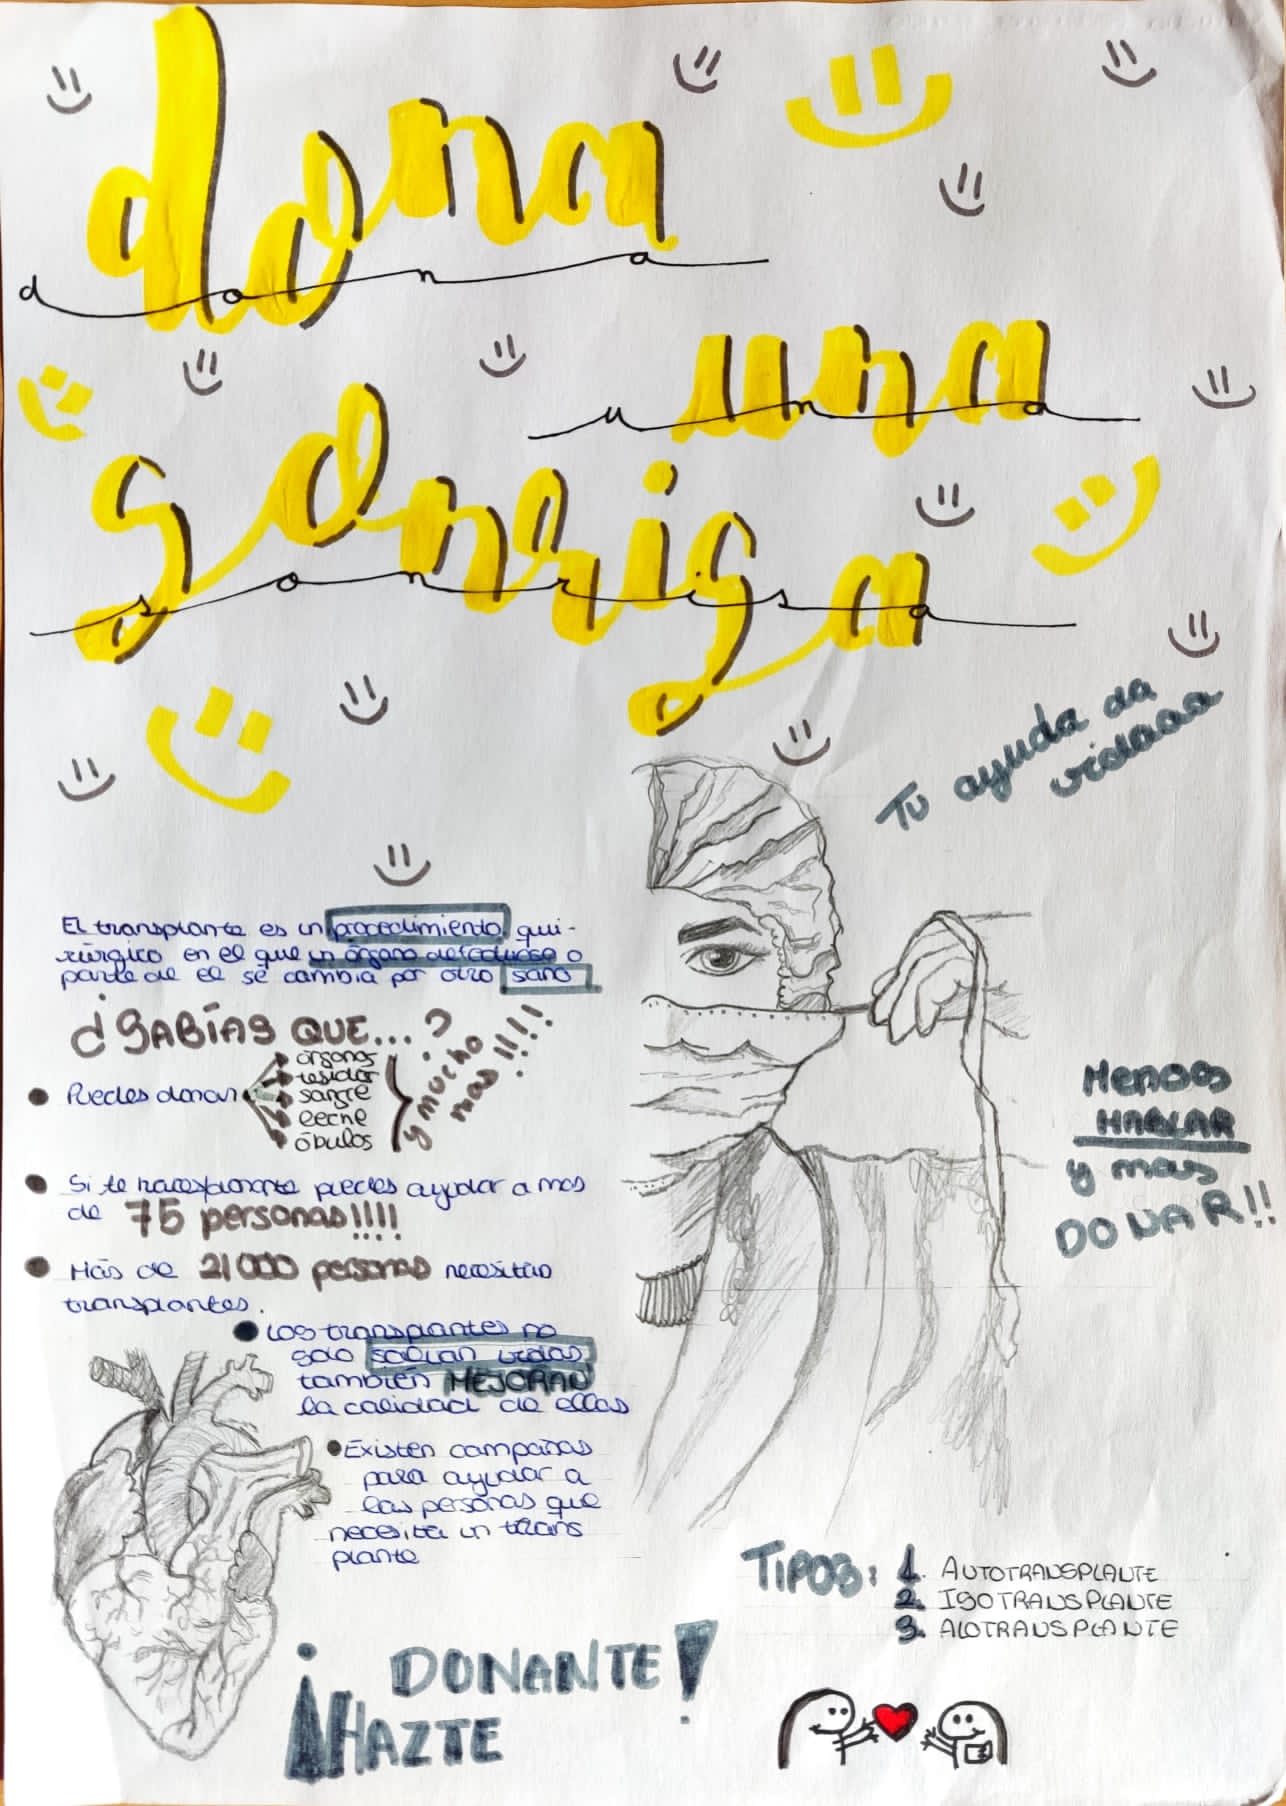 dona
dona
una
una
sonrisa
sonrisa
Tu ayuda da
vidaaaa
El transplante es un procedimiento qui-
rúrgico en el que un órgano defectuoso o
parte de el se cambia por otro sano
¿SABÍAS QUE...?
Puedes donar
órganos
tejidos
sangre
leche
óbulos
y mucho
mas!!!!!
Si te transplante puedes ayudar a mas
de 75 personas!!!!
Más de 21000 personas necesitan
transplantes.
Los transplantes no
solo salvan vidas
también MEJORAN
la calidad de ellas
Existen campañas
para ayudar a
las personas que
necesita un trans
plante
Menos
HABLAR
y mas
DONAR!!
TIPOS:
1. AUTOTRANSPLANTE
2. ISOTRANSPLANTE
3. ALOTRANSPLANTE
¡HAZTE
DONANTE!